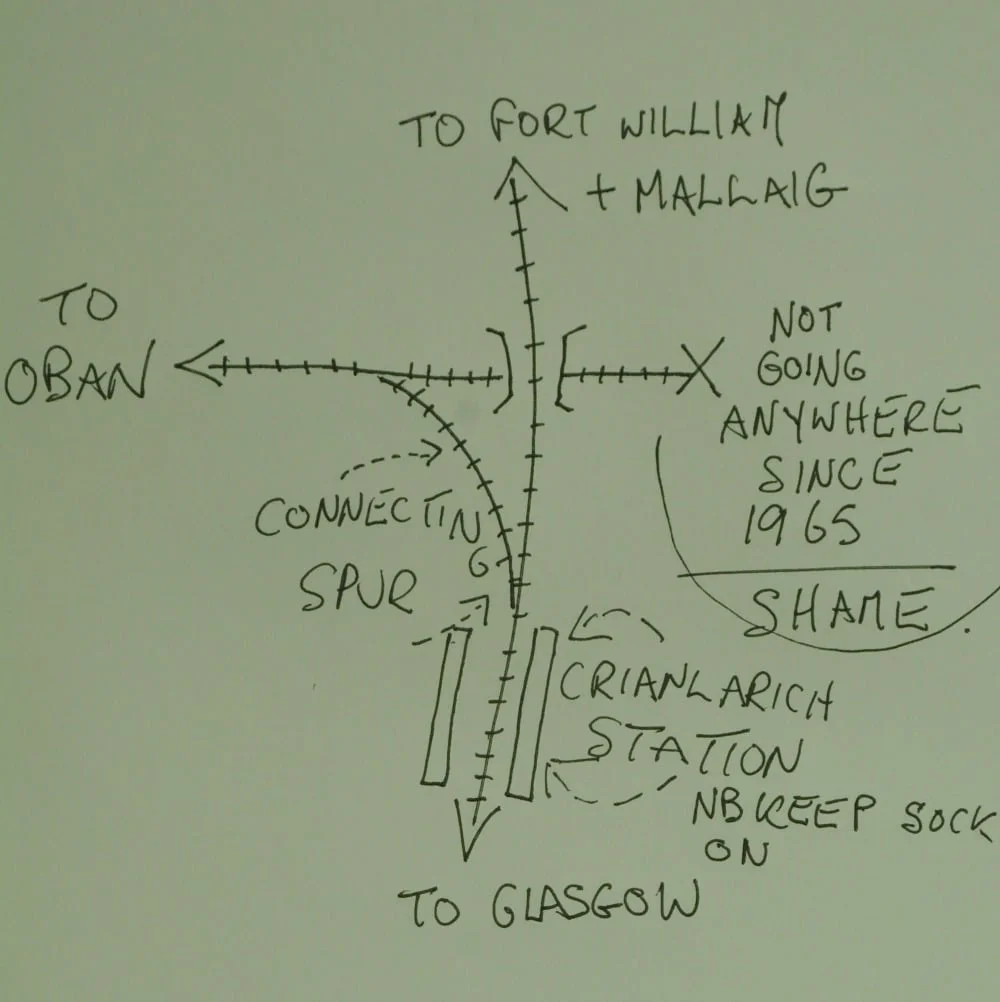 TO FORT WILLIAM
+ MALLAIG
TO
OBAN
NOT
GOING
ANYWHERE
SINCE
1965
SHAME.
CONNECTIN
G
SPUR
CRIANLARICH
STATION
NB KEEP SOCK
ON
TO GLASGOW